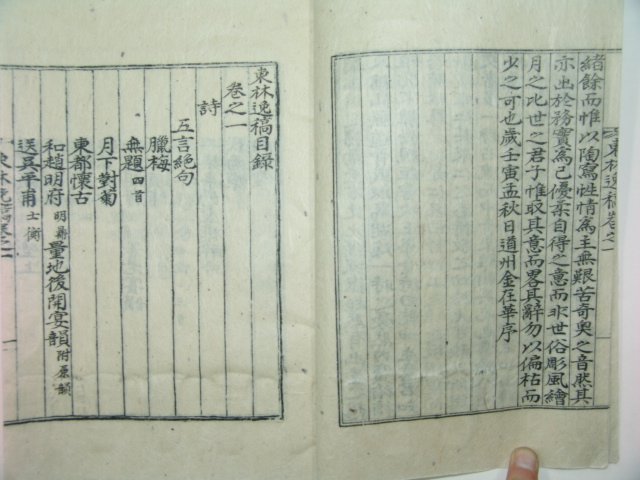 東林逸稿卷之一
緖餘而惟以陶寫性情爲主無艱苦奇奧之音然其
亦出於務實爲己優柔自得之意而非世俗彫風繪
月之比世之君子惟取其意而畧其辭勿以偏枯而
少之可也歲壬寅孟秋日道州金在華序
東林逸稿目錄
卷之一
詩
五言絶句
臘梅
無題四首
月下對菊
東都懷古
和趙明府明鼎量地後開宴韻附原韻
送吳平甫士衡
東林逸稿卷之一